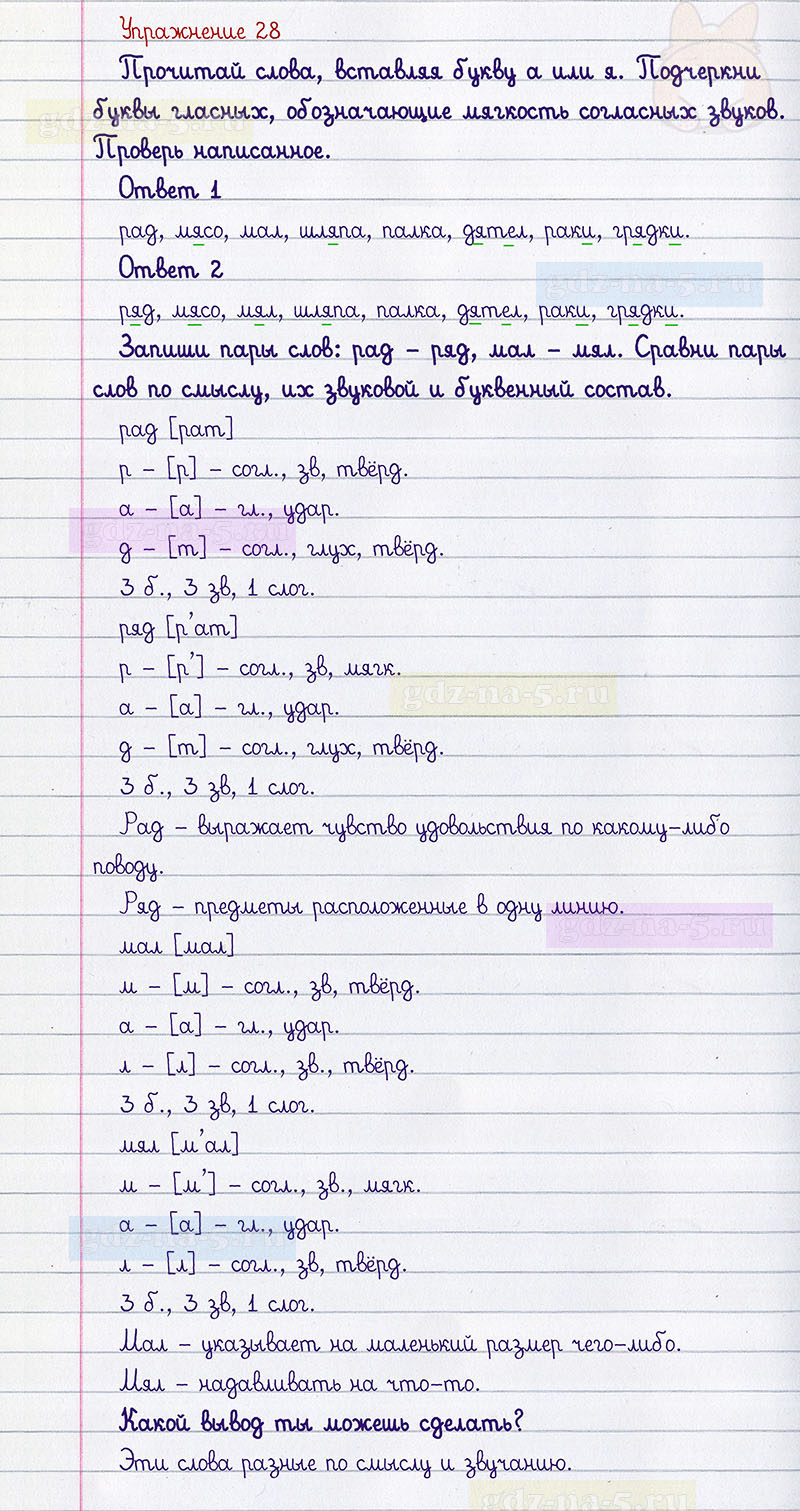 Упражнение 28
Прочитай слова, вставляя букву а или я. Подчеркни
буквы гласных, обозначающие мягкость согласных звуков.
gdz-na-5.ru
Проверь написанное.
Ответ 1
рад, мясо, мал, шляпа, палка, дятел, раки, грядки.
Ответ 2
gdz-na-5.ru
ряд, мясо, мял, шляпа, палка, дятел, раки, грядки.
Запиши пары слов: рад – ряд, мал – мял. Сравни пары
слов по смыслу, их звуковой и буквенный состав.
рад [рат]
р – [р] – согл., зв, твёрд.
а – [а] – гл., удар.
gdz-na-5.ru
д – [т] – согл., глух, твёрд.
3 б., 3 зв, 1 слог.
ряд [р’ат]
р – [р’] – согл., зв, мягк.
gdz-na-5.ru
а – [а] – гл., удар.
д – [т] – согл., глух, твёрд.
3 б., 3 зв, 1 слог.
Рад – выражает чувство удовольствия по какому-либо
поводу.
Ряд – предметы расположенные в одну линию.
gdz-na-5.ru
мал [мал]
м – [м] – согл., зв, твёрд.
а – [а] – гл., удар.
л – [л] – согл., зв., твёрд.
3 б., 3 зв, 1 слог.
мял [м’ал]
м – [м’] – согл., зв., мягк.
а – [а] – гл., удар.
gdz-na-5.ru
л – [л] – согл., зв, твёрд.
3 б., 3 зв, 1 слог.
Мал – указывает на маленький размер чего-либо.
Мял – надавливать на что-то.
Какой вывод ты можешь сделать?
Эти слова разные по смыслу и звучанию.
gdz-na-5.ru